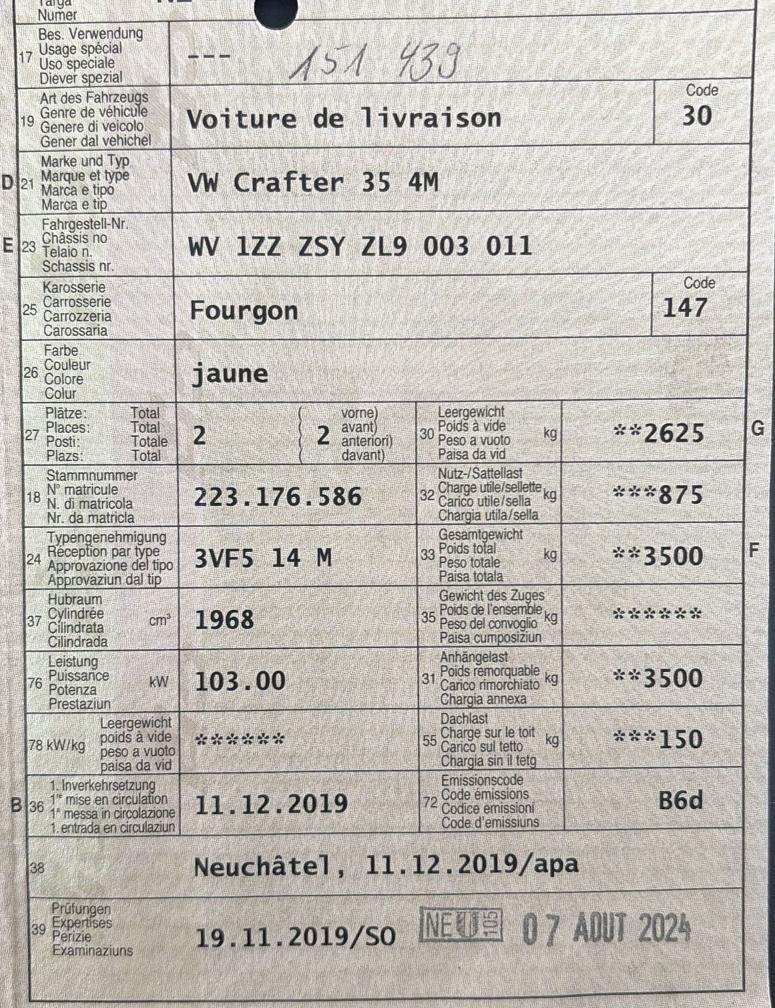 Targa
Numer
17 Bes. Verwendung
Usage spécial
Uso speciale
Diever spezial
---
151 439
19 Art des Fahrzeugs
Genre de véhicule
Genere di veicolo
Gener dal vehichel
Voiture de livraison
Code
30
D 21 Marke und Typ
Marque et type
Marca e tipo
Marca e tip
VW Crafter 35 4M
E 23 Fahrgestell-Nr.
Châssis no
Telaio n.
Schassis nr.
WV 1ZZ ZSY ZL9 003 011
25 Karosserie
Carrosserie
Carrozzeria
Carossaria
Fourgon
Code
147
26 Farbe
Couleur
Colore
Colur
jaune
27 Plätze: Total
Places: Total
Posti: Totale
Plazs: Total
2
( 2 vorne)
avant)
anteriori)
davant)
30 Leergewicht
Poids à vide kg
Peso a vuoto
Paisa da vid
**2625
G
18 Stammnummer
N° matricule
N. di matricola
Nr. da matricla
223.176.586
32 Nutz-/Sattellast
Charge utile/sellette kg
Carico utile/sella
Chargia utila/sella
***875
24 Typengenehmigung
Réception par type
Approvazione del tipo
Approvaziun dal tip
3VF5 14 M
33 Gesamtgewicht
Poids total kg
Peso totale
Paisa totala
**3500
F
37 Hubraum
Cylindrée cm³
Cilindrata
Cilindrada
1968
35 Gewicht des Zuges
Poids de l'ensemble kg
Peso del convoglio
Paisa cumposiziun
******
76 Leistung
Puissance kW
Potenza
Prestaziun
103.00
31 Anhängelast
Poids remorquable kg
Carico rimorchiato
Chargia annexa
**3500
78 kW/kg Leergewicht
poids à vide
peso a vuoto
paisa da vid
******
55 Dachlast
Charge sur le toit kg
Carico sul tetto
Chargia sin il tetg
***150
B 36 1. Inverkehrsetzung
1re mise en circulation
1a messa in circolazione
1. entrada en circulaziun
11.12.2019
72 Emissionscode
Code émissions
Codice emissioni
Code d'emissiuns
B6d
38
Neuchâtel, 11.12.2019/apa
39 Prüfungen
Expertises
Perizie
Examinaziuns
19.11.2019/SO
NEU 105
07 AOUT 2024